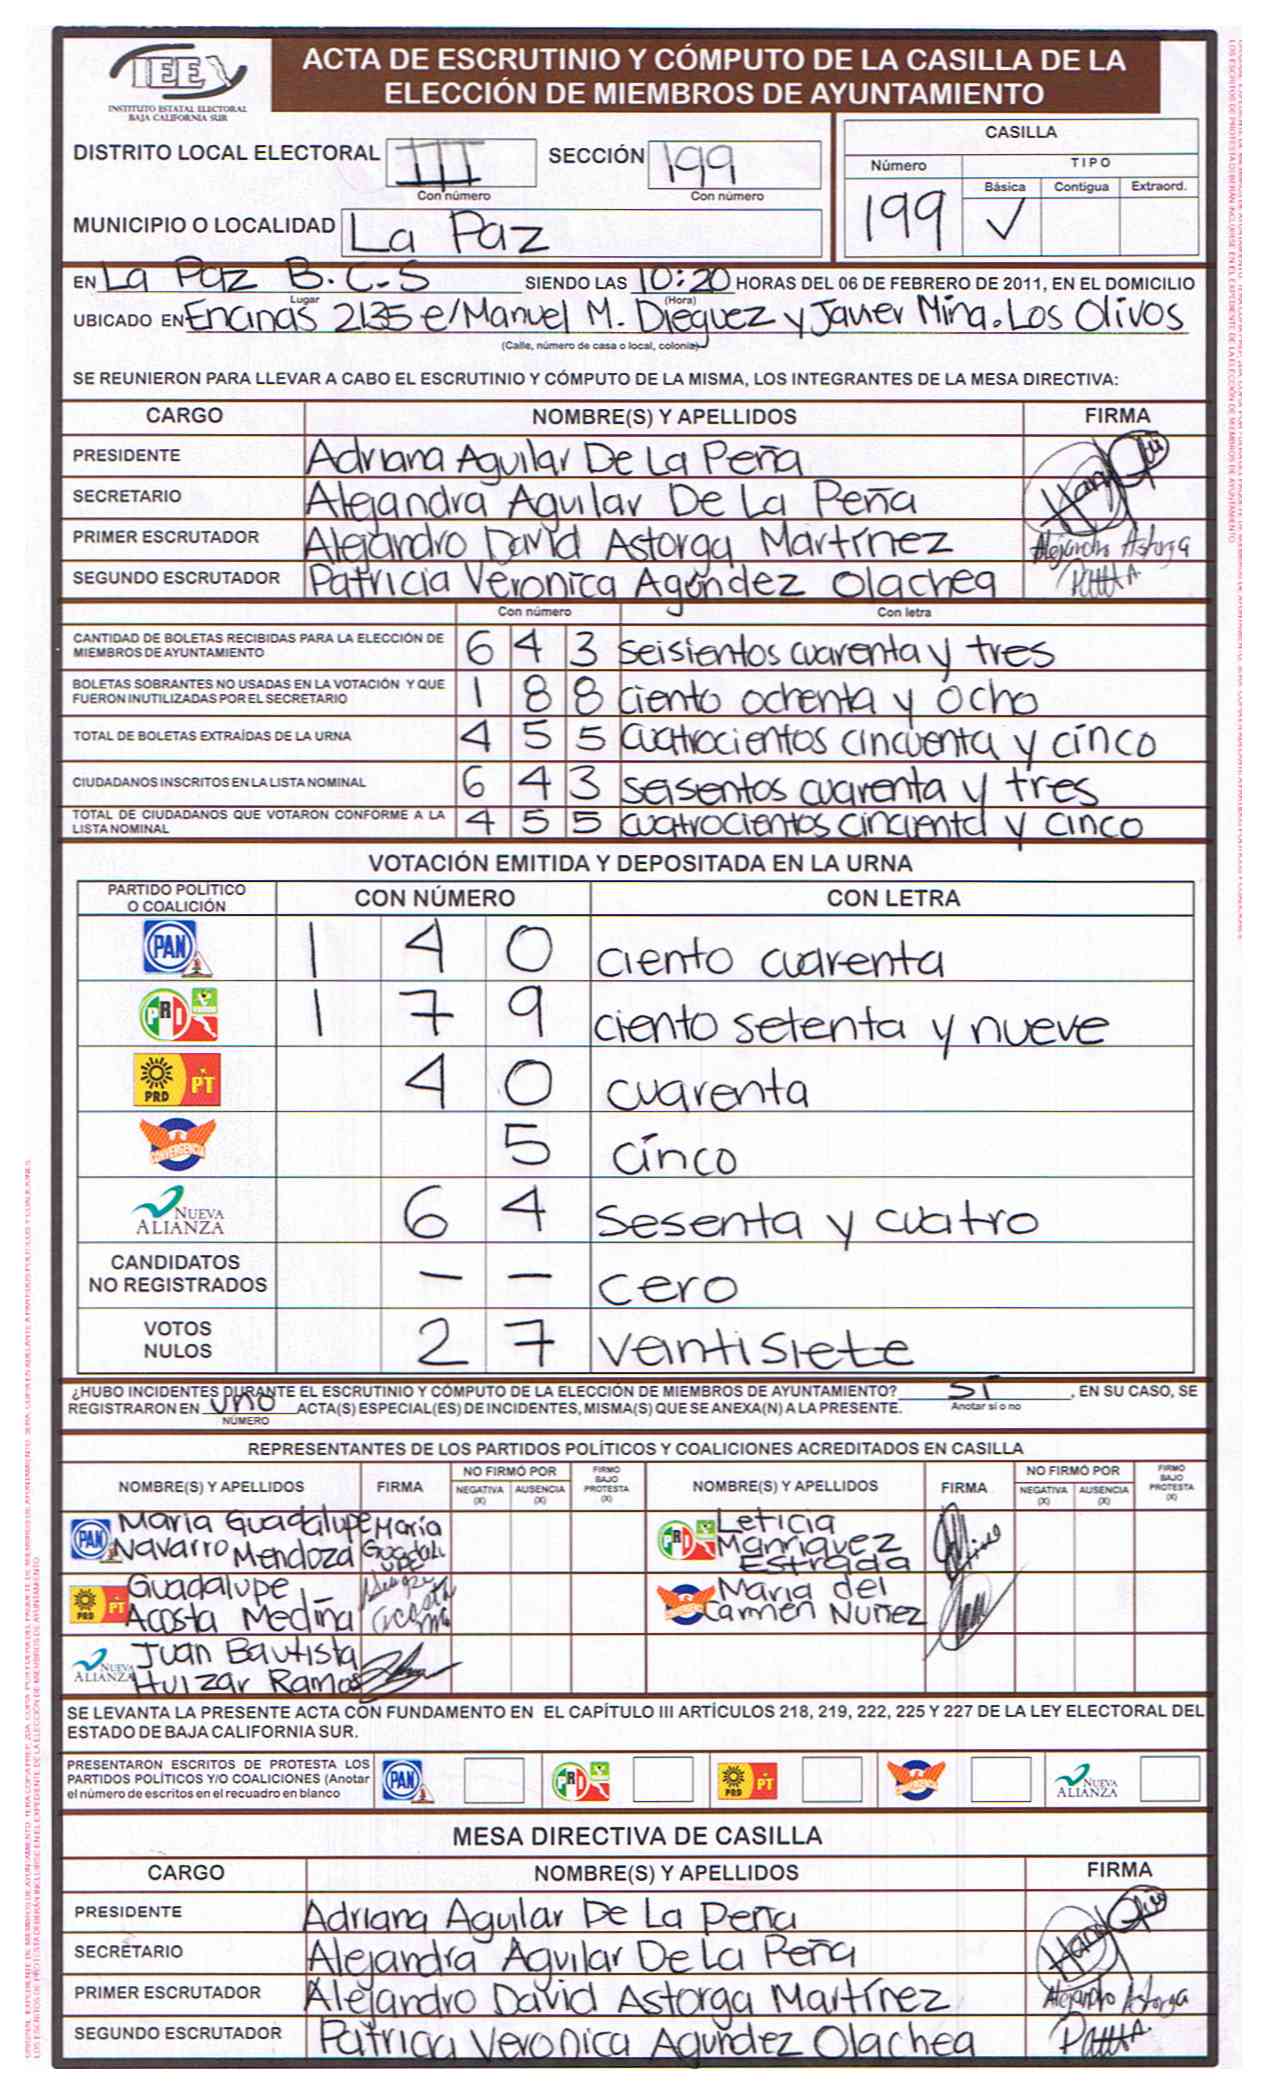 IEEX
INSTITUTO ESTATAL ELECTORAL
BAJA CALIFORNIA SUR
ACTA DE ESCRUTINIO Y CÓMPUTO DE LA CASILLA DE LA
ELECCIÓN DE MIEMBROS DE AYUNTAMIENTO
DISTRITO LOCAL ELECTORAL III SECCIÓN 199
Con número Con número
CASILLA
Número TIPO
Básica Contigua Extraord.
199 ✓
MUNICIPIO O LOCALIDAD La Paz
EN La Paz B.C.S SIENDO LAS 10:20 HORAS DEL 06 DE FEBRERO DE 2011, EN EL DOMICILIO
Lugar (Hora)
UBICADO EN Encinas 2135 e/Manuel M. Dieguez y Javier Mina. Los Olivos
(Calle, número de casa o local, colonia)
SE REUNIERON PARA LLEVAR A CABO EL ESCRUTINIO Y CÓMPUTO DE LA MISMA, LOS INTEGRANTES DE LA MESA DIRECTIVA:
CARGO NOMBRE(S) Y APELLIDOS FIRMA
PRESIDENTE Adriana Aguilar De La Peña
SECRETARIO Alejandra Aguilar De La Peña
PRIMER ESCRUTADOR Alejandro David Astorga Martínez Alejandro Astorga
SEGUNDO ESCRUTADOR Patricia Veronica Agúndez Olachea
Con número Con letra
CANTIDAD DE BOLETAS RECIBIDAS PARA LA ELECCIÓN DE
MIEMBROS DE AYUNTAMIENTO 6 4 3 seisientos cuarenta y tres
BOLETAS SOBRANTES NO USADAS EN LA VOTACIÓN Y QUE
FUERON INUTILIZADAS POR EL SECRETARIO 1 8 8 ciento ochenta y ocho
TOTAL DE BOLETAS EXTRAÍDAS DE LA URNA 4 5 5 cuatrocientos cincuenta y cinco
CIUDADANOS INSCRITOS EN LA LISTA NOMINAL 6 4 3 seisentos cuarenta y tres
TOTAL DE CIUDADANOS QUE VOTARON CONFORME A LA
LISTA NOMINAL 4 5 5 cuatrocientos cincuenta y cinco
VOTACIÓN EMITIDA Y DEPOSITADA EN LA URNA
PARTIDO POLÍTICO
O COALICIÓN CON NÚMERO CON LETRA
PAN 1 4 0 ciento cuarenta
PRI 1 7 9 ciento setenta y nueve
PRD PT 4 0 cuarenta
CONVERGENCIA 5 cinco
NUEVA ALIANZA 6 4 sesenta y cuatro
CANDIDATOS
NO REGISTRADOS – – cero
VOTOS
NULOS 2 7 veintisiete
¿HUBO INCIDENTES DURANTE EL ESCRUTINIO Y CÓMPUTO DE LA ELECCIÓN DE MIEMBROS DE AYUNTAMIENTO? SI , EN SU CASO, SE
REGISTRARON EN uno ACTA(S) ESPECIAL(ES) DE INCIDENTES, MISMA(S) QUE SE ANEXA(N) A LA PRESENTE. Anotar sí o no
NÚMERO
REPRESENTANTES DE LOS PARTIDOS POLÍTICOS Y COALICIONES ACREDITADOS EN CASILLA
NOMBRE(S) Y APELLIDOS FIRMA NO FIRMÓ POR NEGATIVA (X) AUSENCIA (X) FIRMÓ BAJO PROTESTA (X) NOMBRE(S) Y APELLIDOS FIRMA NO FIRMÓ POR NEGATIVA (X) AUSENCIA (X) FIRMÓ BAJO PROTESTA (X)
PAN Maria Guadalupe Navarro Mendoza María Guadalupe
PRI Leticia Manriquez Estrada
PRD PT Guadalupe Acosta Medina
CONVERGENCIA Maria del Carmen Nuñez
NUEVA ALIANZA Juan Bautista Huizar Ramos
SE LEVANTA LA PRESENTE ACTA CON FUNDAMENTO EN EL CAPÍTULO III ARTÍCULOS 218, 219, 222, 225 Y 227 DE LA LEY ELECTORAL DEL
ESTADO DE BAJA CALIFORNIA SUR.
PRESENTARON ESCRITOS DE PROTESTA LOS
PARTIDOS POLÍTICOS Y/O COALICIONES (Anotar
el número de escritos en el recuadro en blanco
PAN PRI PRD PT CONVERGENCIA NUEVA ALIANZA
MESA DIRECTIVA DE CASILLA
CARGO NOMBRE(S) Y APELLIDOS FIRMA
PRESIDENTE Adriana Aguilar De La Peña
SECRETARIO Alejandra Aguilar De La Peña
PRIMER ESCRUTADOR Alejandro David Astorga Martínez Alejandro Astorga
SEGUNDO ESCRUTADOR Patricia Veronica Agundez Olachea